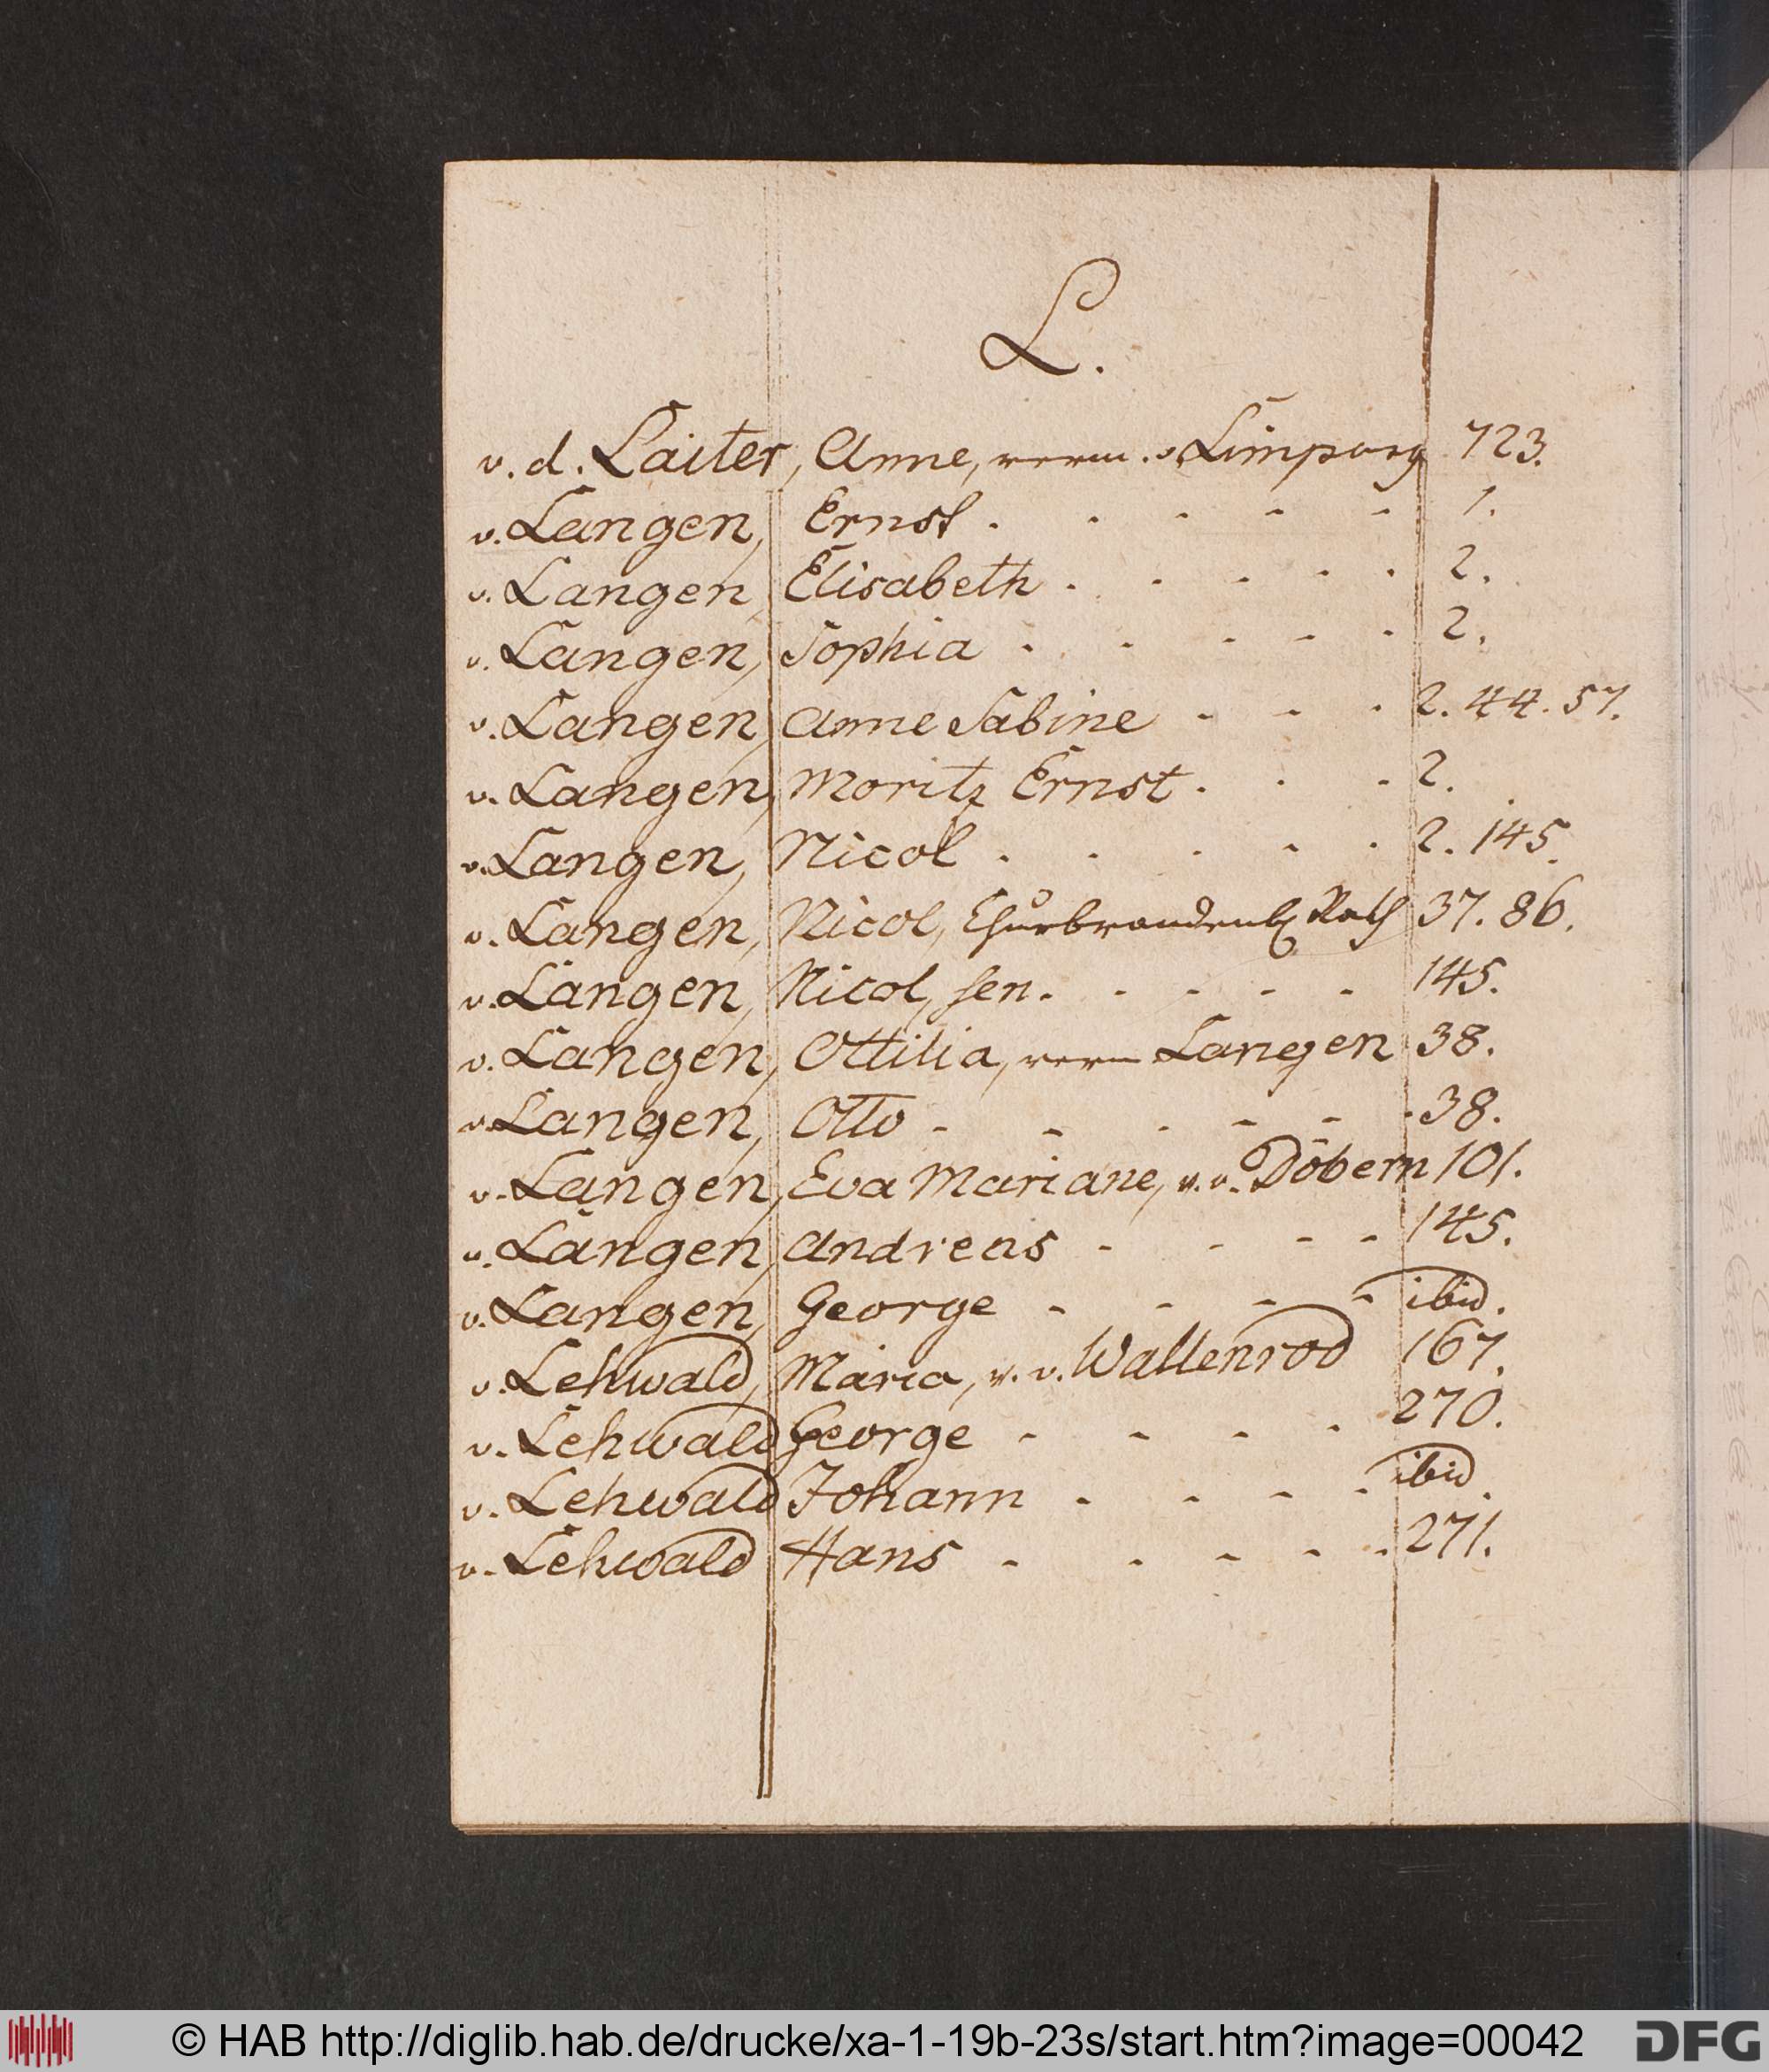 L.
v. d. Laiter, Anne, verm. v. Limpurg 723.
v. Langen, Ernst . - - - - 1.
v. Langen, Elisabeth . - - - - 2.
v. Langen, Sophia . - - - - 2.
v. Langen, Anne Sabine - - - 2. 44. 57.
v. Langen, Moritz Ernst . - - 2.
v. Langen, Nicol . - - - - 2. 145.
v. Langen, Nicol, Churbrandenb. Rath 37. 86.
v. Langen, Nicol, sen. - - - - 145.
v. Langen, Ottilia, verm Langen 38.
v. Langen, Otto - - - - - - 38.
v. Langen, Eva Mariane, v. v. Döbern 101.
v. Langen, Andreas - - - - 145.
v. Langen, George - - - - ibid.
v. Lehwald, Maria, v. v. Wallenrod 167.
v. Lehwald George - - - - 270.
v. Lehwald Johann - - - - ibid.
v. Lehwald Hans - - - - - 271.
© HAB http://diglib.hab.de/drucke/xa-1-19b-23s/start.htm?image=00042
DFG